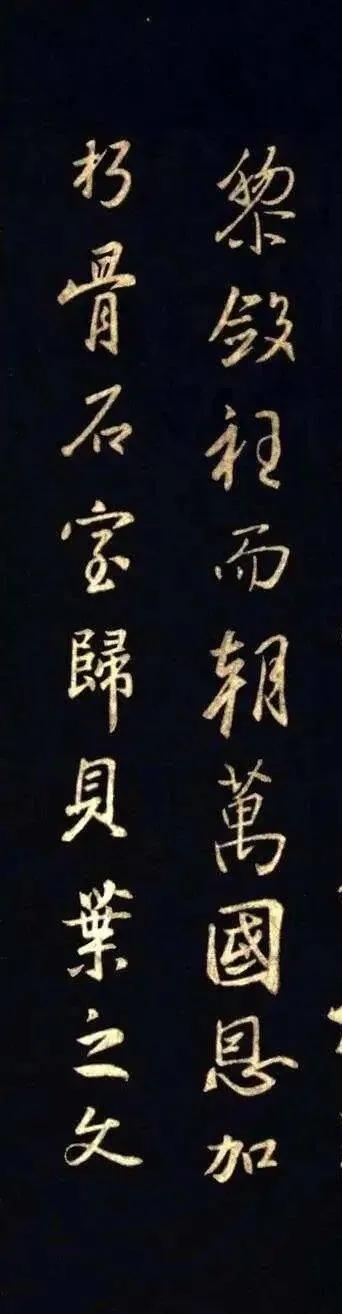 黎斂衽而朝萬國恩加
朽骨石室歸貝葉之文